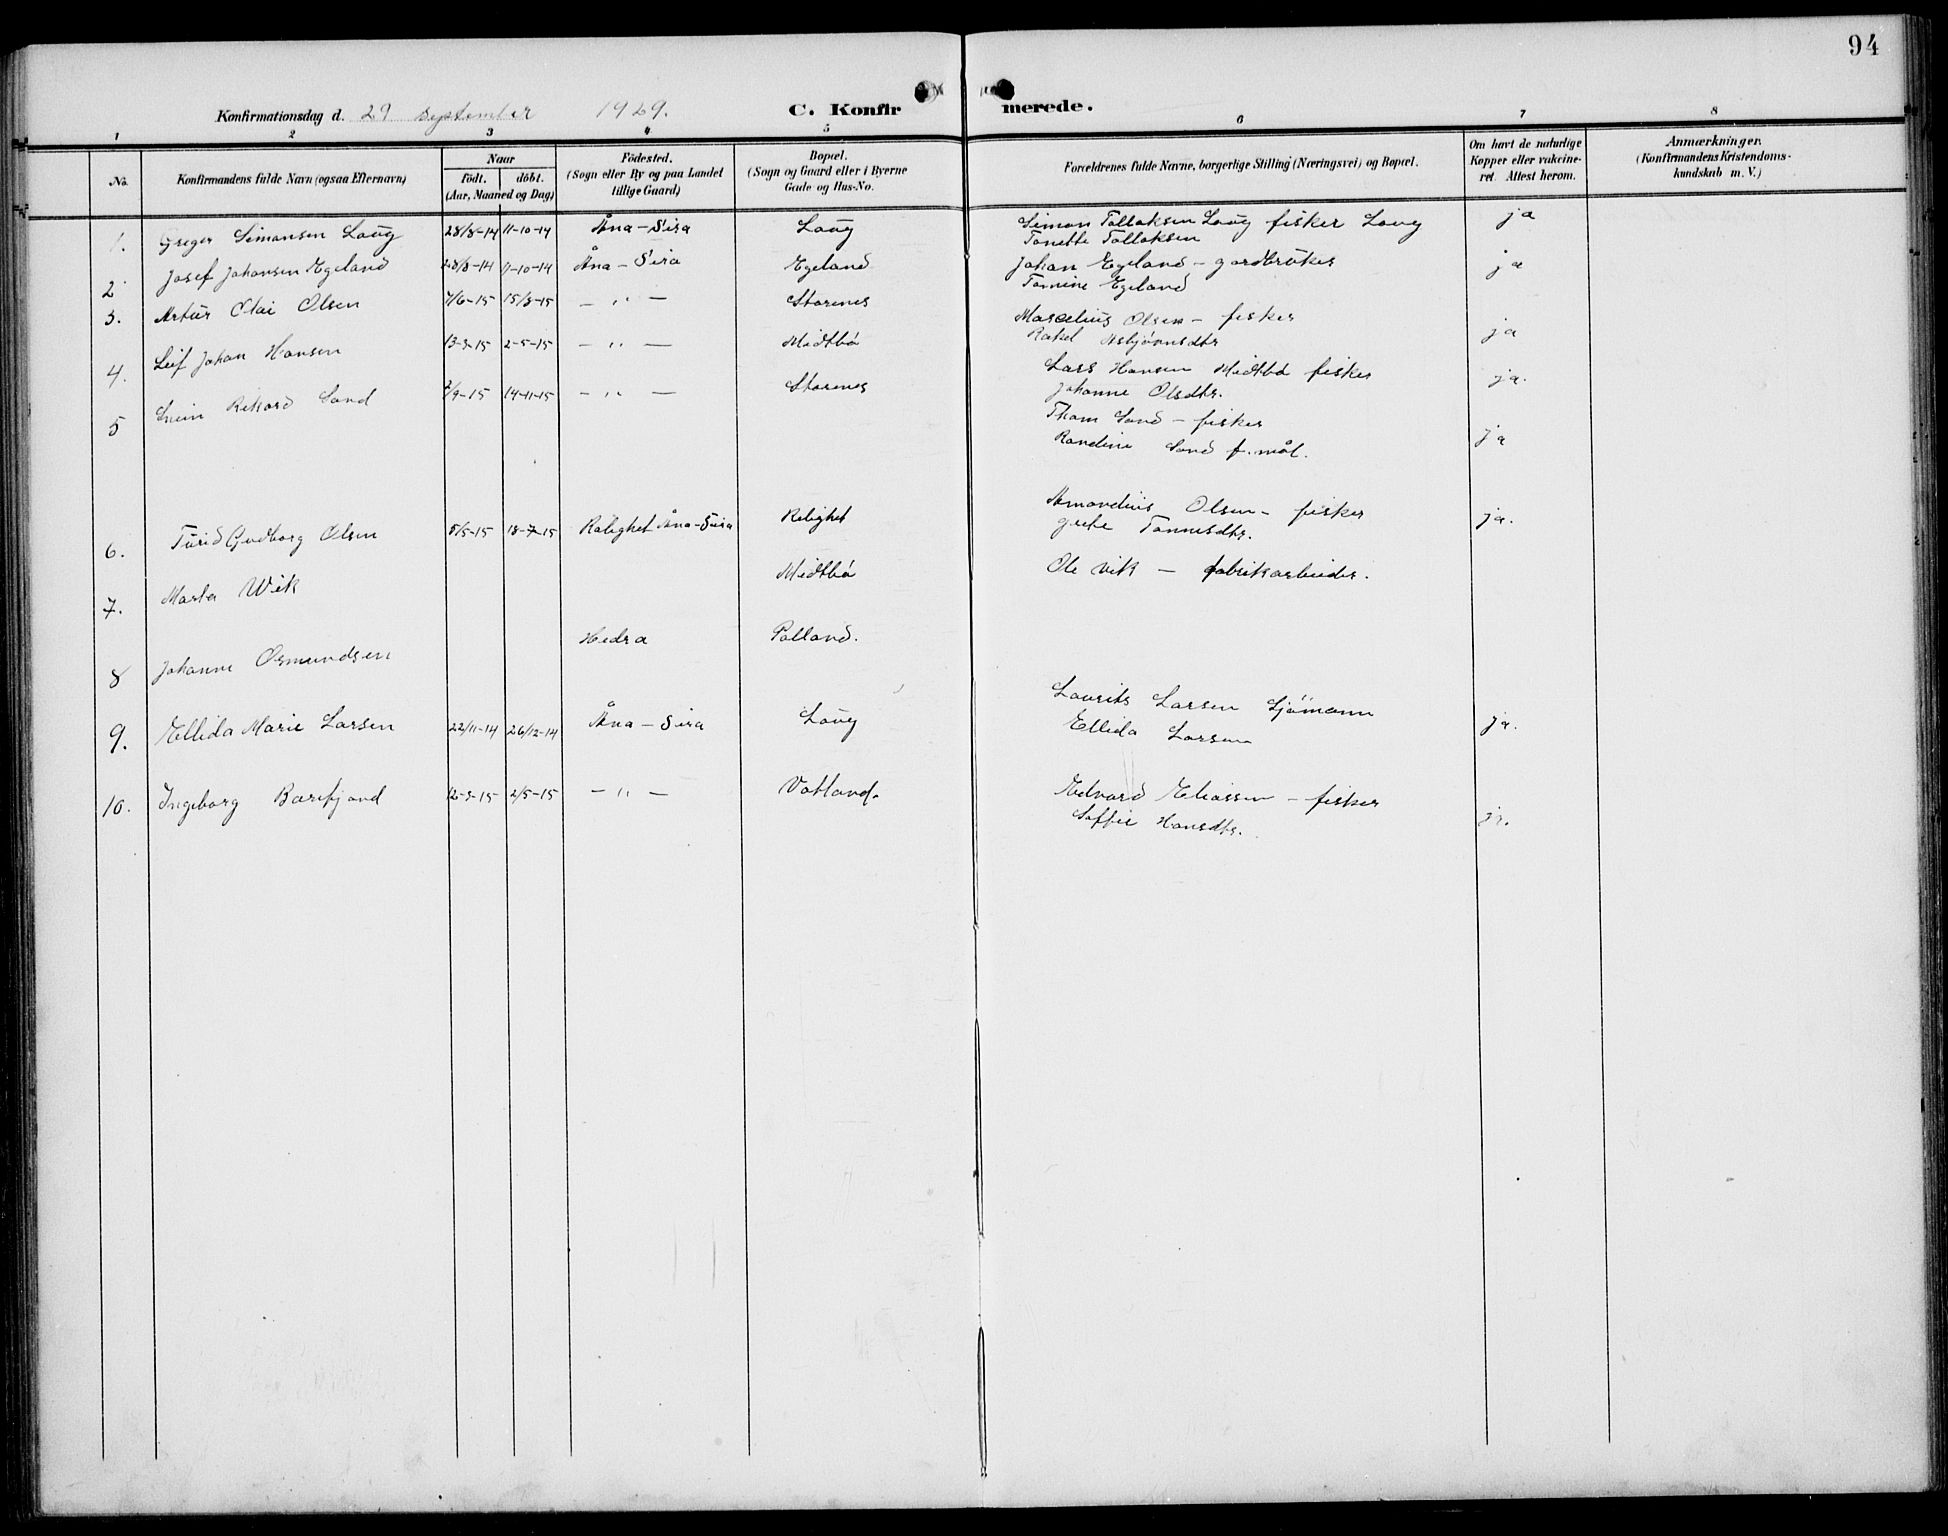 94
Konfirmationsdag d. 29 september 1929. C. Konfir merede.
1 2 3 4 5 6 7 8
No. Konfirmandens fulde Navn (ogsaa Efternavn) Naar født. døbt. (Aar, Maaned og Dag) Fødested. (Sogn eller By og paa Landet tillige Gaard) Bopæl. (Sogn og Gaard eller i Byerne Gade og Hus-No. Forældrenes fulde Navne, borgerlige Stilling (Næringsvei) og Bopæl. Om havt de naturlige Kopper eller vakcineret. Attest herom. Anmærkninger. (Konfirmandens Kristendomskundskab m. V.)
1. Greger Simonsen Laug 28/8-14 11-10-14 Åna-Sira Laug Simon Tollaksen Laug fisker Laug ja
Tonette Tollaksen
2 Josef Johansen Egeland 28/8-14 11-10-14 Åna-Sira Egeland Johan Egeland - gardbruker ja
Tomine Egeland
3. Artur Olai Olsen 7/6-15 15/8-15 - " - Storenes Marcelius Olsen - fisker
Rakel Asbjørnsdtr ja
4. Leif Johan Hansen 13-3-15 2-5-15 - " - Midtbø Lars Hansen Midtbø fisker ja.
Johanne Olsdtr.
5 Svein Rikard Sand 7/9-15 14-11-15 - " - Storenes Thom Sand - fisker
Randine Sand f. mål. ja
6. Turid Gudborg Olsen 8/5-15 18-7-15 Rolighet Åna-Sira Rolighet Amandius Olsen - fisker ja.
grete Tønnesdtr.
7. Marta Wik Midtbø Ole vik - fabrikarbeider.
8 Johanne Osmundsen Hedra Polland.
9. Ellida Marie Larsen 22/11-14 26/12-14 Åna-Sira Laug Laurits Larsen Sjømann ja.
Ellida Larsen
10. Ingeborg Barefjord 12-3-15 2/5-15 - " - Vatland. Edvard Eliassen - fisker
Soffie Hansdtr. ja.